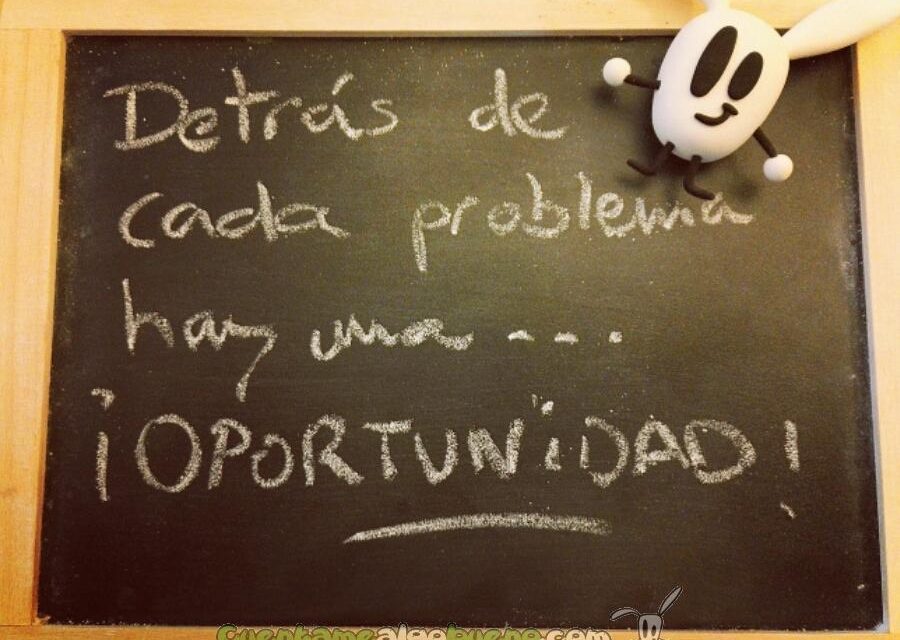 Detrás de
cada problema
hay una ....
¡OPORTUNiDAD!
cuentamealgobueno.com